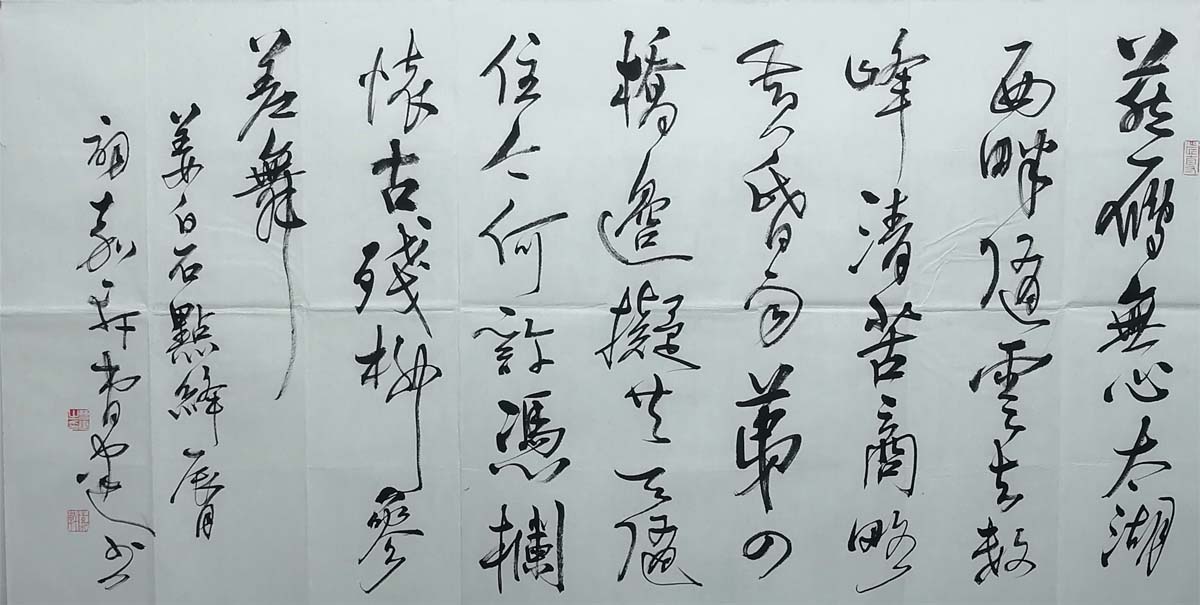 燕鴈無心太湖
西畔隨雲去數
峰清苦商略
黃昏雨第四
橋邊擬共天隨
住今何許憑欄
懷古殘柳參
差舞
姜白石點絳脣
詞 书